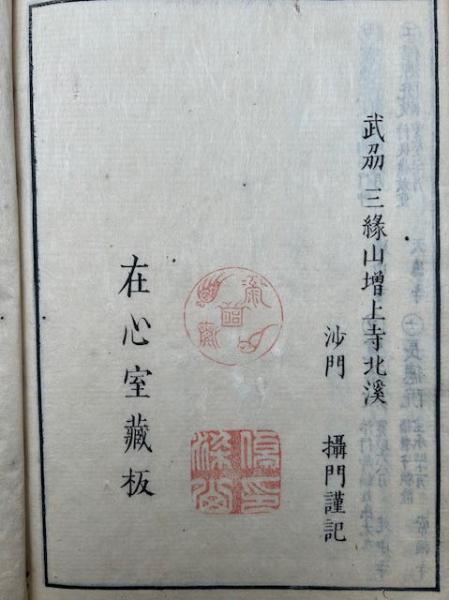 武刕三緣山增上寺北溪
沙門　攝門謹記
在心室藏板